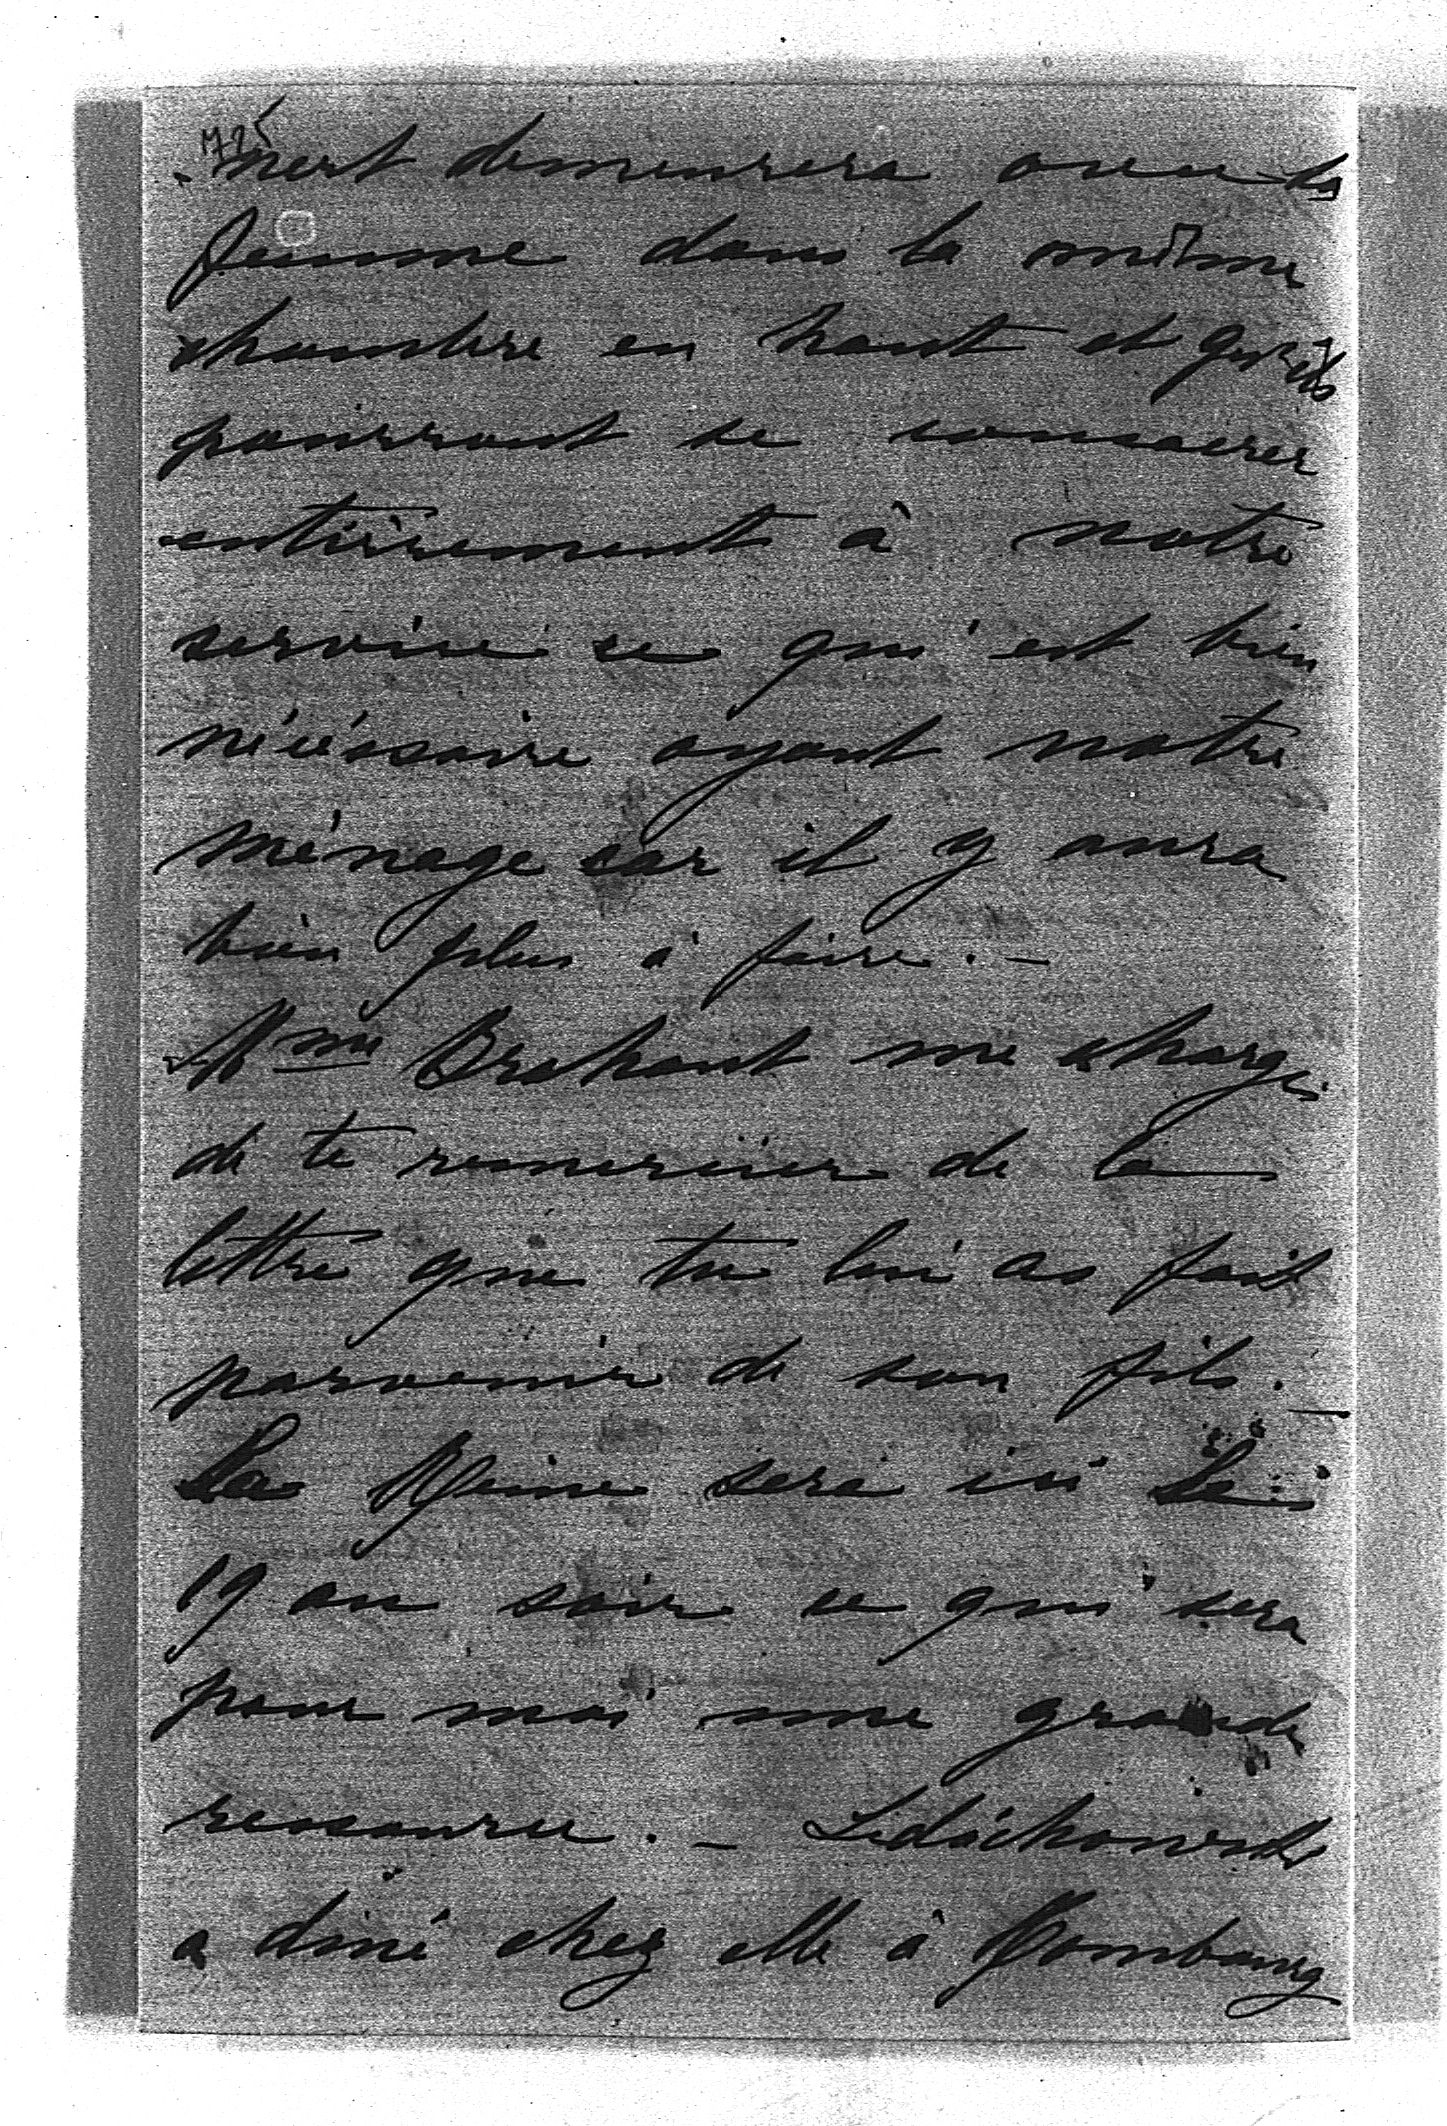 725
-nert demeurera avec sa
femme dans la même
chambre en haut et qu'ils
pourront se consacrer
entièrement à notre
service ce qui est bien
nécéssaire ayant notre
ménage car il y aura
bien plus à faire. -
Mme Brahaut me charge
de te remercier de la
lettre que tu lui as fait
parvenir de son fils. -
La Reine sera ici le
19 au soir ce qui sera
pour moi une grande
ressource. - Ledóchowski
a diné chez elle à Hombourg